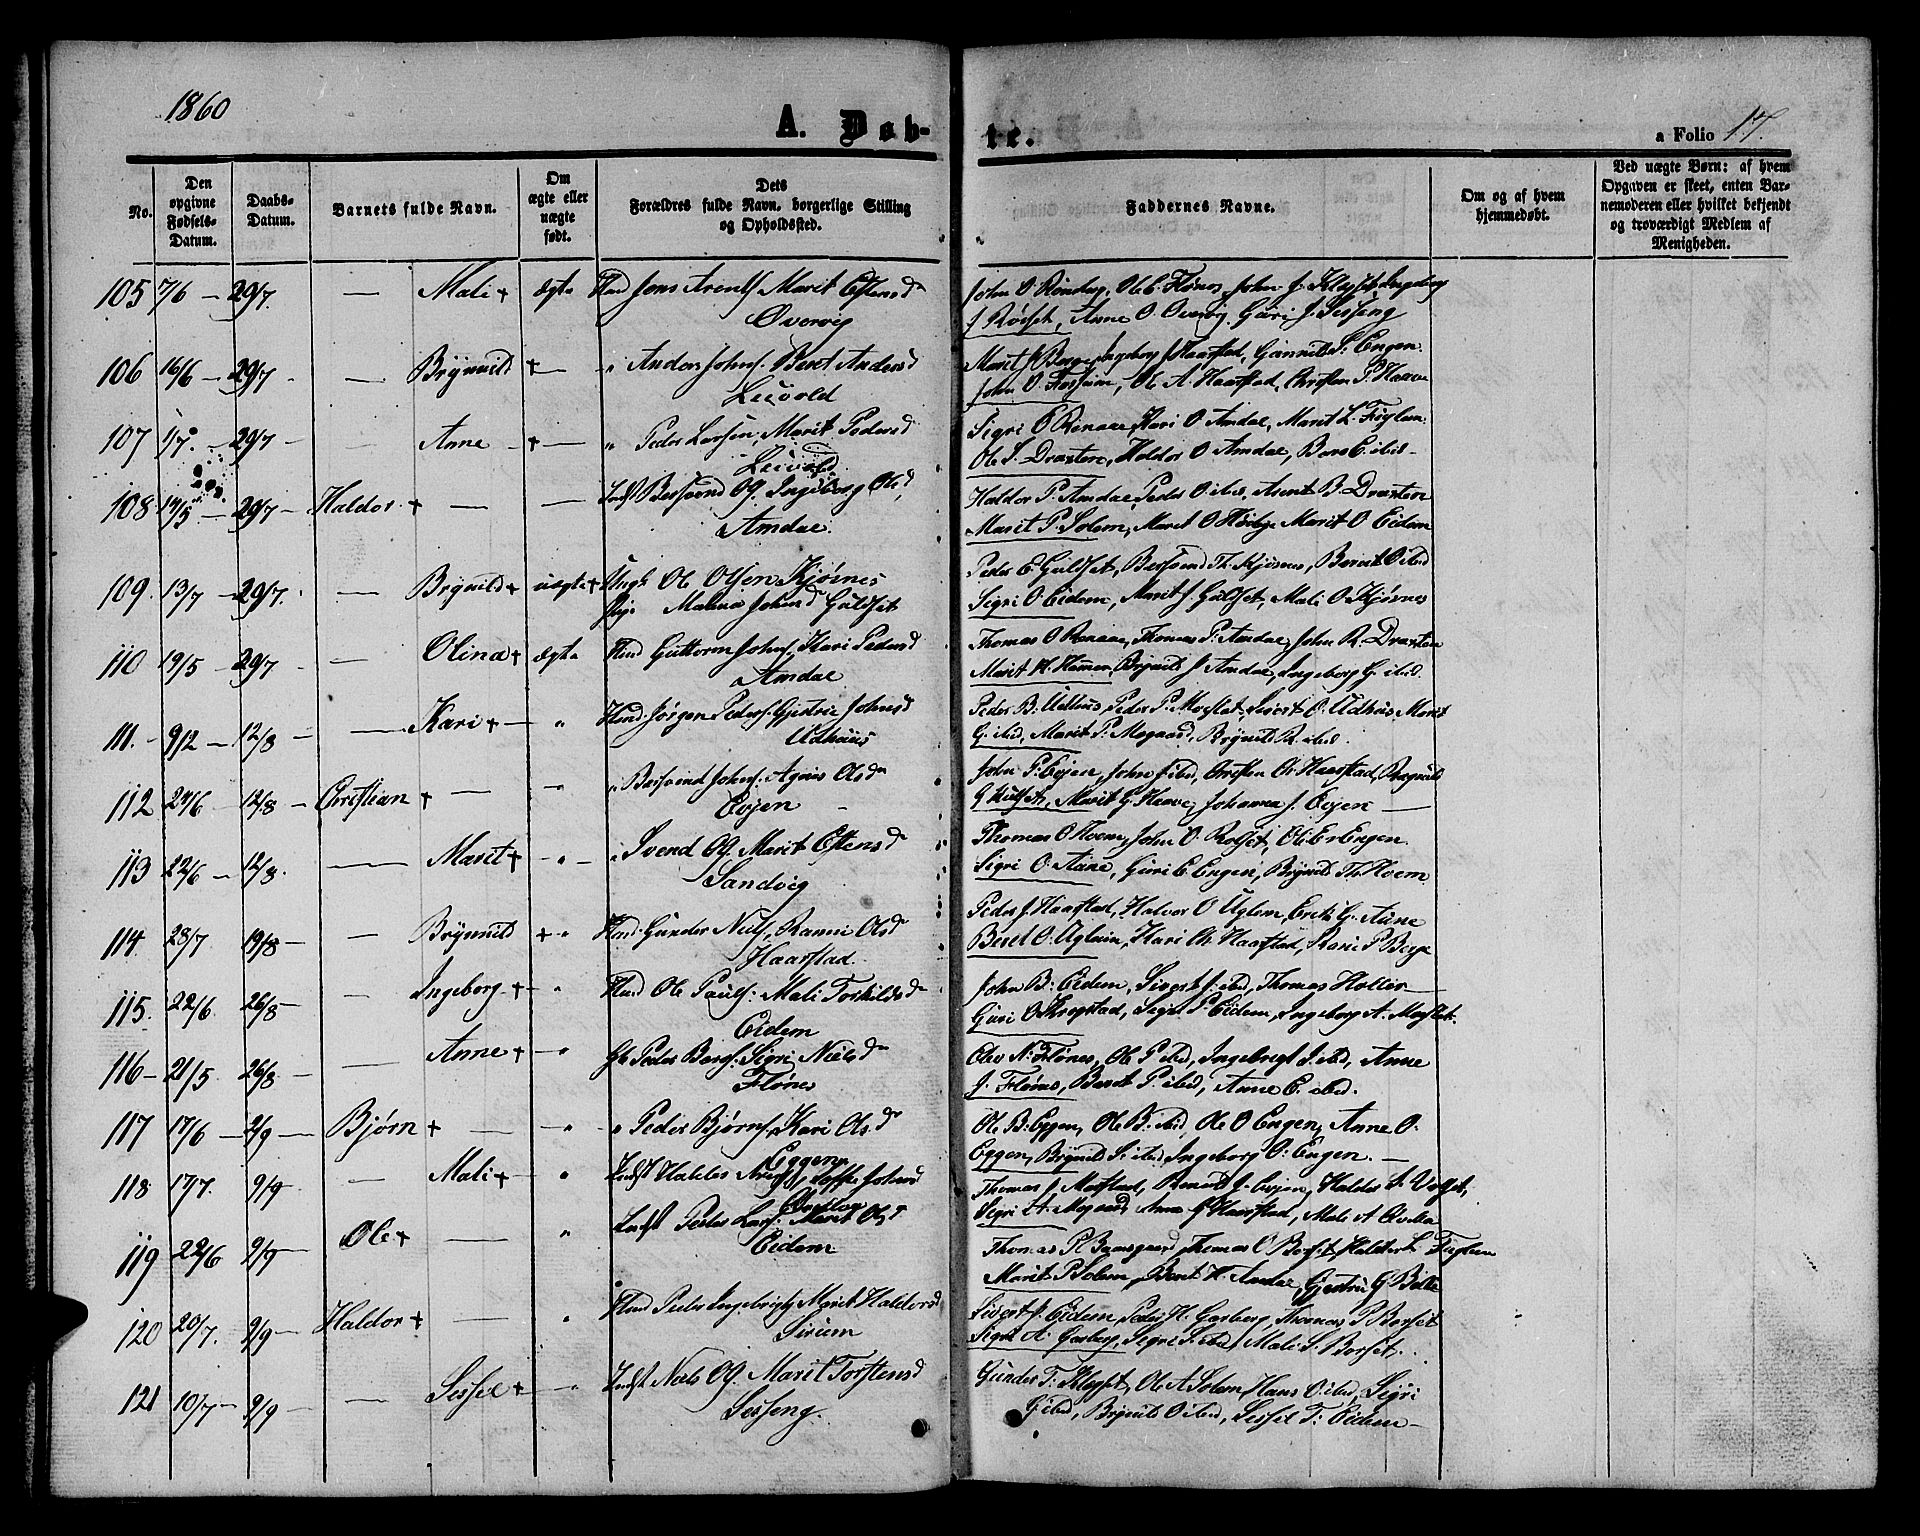 1860
A. Døb-
te.
a Folio 17.
No.
Den opgivne Fødsels-Datum.
Daabs-Datum.
Barnets fulde Navn.
Om ægte eller uægte født.
Dets Forældres fulde Navn, borgerlige Stilling og Opholdssted.
Faddernes Navne.
Om og af hvem hjemmedøbt.
Ved uægte Børn: af hvem Opgaven er skeet, enten Barnemoderen eller hvilket bekjendt og troværdigt Medlem af Menigheden.
105 7/6 — 29/7. — Mali + ægte Hmd Jens Arents. Marit Estensd
Overvig
John O Rønsberg, Ole E Flønes, John J.
J Røsset, Anne O. Overvig, Guri J. Sesseng
106 16/6 — 29/7 — Brynild + — " Anders Johns. Beret Andersd
Leivold
Marit J Berge, Ingeborg J Haarstad, Gunnild S. Engen.
John O. Fossum, Ole A. Haarstad, Christen P. Haave
107 1/7 29/7 — Anne + — " Peder Larsen, Marit Pedersd
Leivold
Sigri E Renaae, Kari O Amdae, Marit L. Fuglem
Ole J. Draxten, Haldor O Amdae, Baro E. ibid —
108 14/5 29/7 — Haldor + — — Indst Bersvend Og. Ingeborg Olsd,
Amdae.
Haldor P. Amdae, Peder O ibid, Arent B. Draxten
Marit P. Solem, Marit O Høilye Marit O Eidem
109. 13/7 — 29/7. — Brynild + uægte + Ungk Ole Olsen Kjøsnes
Pige Malena Johnsd Guldset
Peder E. Guldset, Bersvend Th. Kjøsnes, Bereit O. ibid
Sigri O Eidem, Marit J. Guldset, Mali O. Kjøsnes
110 19/5 29/7 — Olina + ægte Hmd Guttorm Johns. Kari Pedersd
Amdae
Thomas O Renaae, Thomas P. Amdae, John R. Draxten
Marit H. Hammer, Brynild J. Amdae, Ingeborg G. ibid.
111. - 9/2 — 12/8 — Kari + — " Hmd Jørgen Peders. Gjertrie Johnsd
Udhuus
Peder B. Udhuus, Peder P. Mostat, Sivert O. Udhuus, Marit
G. ibid, Marit P. Mogaard, Brynild R. ibid.
112 24/6 — 12/8 — Christian + — " " Bersvend Johns. Agnes Olsdr
Evjen
John P. Evjen, John J ibid, Christen Ch Haarstad, Ragnild
G Kulset, Marit G. Haave, Johanna J. Evjen —
113 22/6 — 12/8. — Marit + — " — " Svend Og. Marit Estensdr
Sandvig
Thomas O Hoem, John O. Rolset, Ole Er Engen.
Sigri O. Aune, Guri E Engen, Brynild Th. Hoem.
114. 28/7 19/8 — — Brynnild + — " Hmd. Gunder Niels, Ranni Olsd
Haarstad.
Peder J. Haarstad, Halvor O Uglem, Erik G. Aune
Beret O. Uglem, Kari Ch. Haarstad, Ranie P Berge
115. 22/6. 26/8 — — Ingeborg + — " Hmd Ole Pauls: Mali Torkildsdr
Eidem
John B. Eidem, Sivert J. ibid, Thomas Holter —
Guri O Krogstad, Sigri P. Eidem, Ingeborg A. Mostat.
116 — 21/5 26/8. Anne + — " Gb Peder Bergs. Sigri Nielsdr
Flønes
Elev N. Flønes, Ole P. ibid, Ingebregt J. ibid, Anne
J. Flønes, Beret P. ibid, Anne E. ibid.
117 17/6 — 2/9 — Bjørn + — — " " Peder Bjørns. Kari Olsdr
Eggen
Ole B. Eggen, Ole B. ibid, Ole O Engen, Anne O.
Eggen, Brynild S. ibid, Ingeborg O. Engen. —
118 17/7. 9/9 — — Mali + — " Indst Haldor Arnts, Johnsd
Thomas J. Mostad, Haldor L.
Sigri A. Mogaard, Anne G Haarstad, Mali A
119 22/6 9/9 — Ole + — " Indst Peder Lars. Marit Olsd
Eidem
Thomas P. Thomas O Borset, Haldor L Fuglem
Marit P Solem, Beret H. Amdae, Gjertru G
120 20/7. 9/9 — Haldor + — " Hmd Peder Ingebrigts Marit Haldorsd
Siraem
Sivert J. Eidem, Peder H. Garberg, Thomas P Borset
Sigri A. Garberg, Sigri S. ibid, Mali S. Borset.
121 10/7 — 9/9 — Sessel + — " Indst Niels Og. Marit Torstensd
Sesseng.
Gunder T. Klepset, Ole A Solem, Hans O. ibid, Sigri
G. ibid, Brynild O ibid, Sessel T. Eidem —